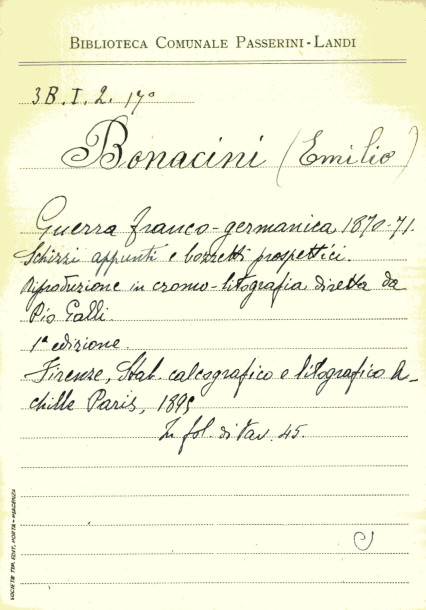 BIBLIOTECA COMUNALE PASSERINI-LANDI
3B.I.2.17°
Bonacini (Emilio)
Guerra franco-germanica 1870-71.
Schizzi appunti e bozzetti prospettici.
Riproduzione in cromo-litografia diretta da
Pio Galli.
1ª edizione.
Firenze, Stab. calcografico e litografico A-
chille Paris, 1895
In fol. di tav. 45.
SOCIETÀ TIP. EDIT. PORTA - PIACENZA